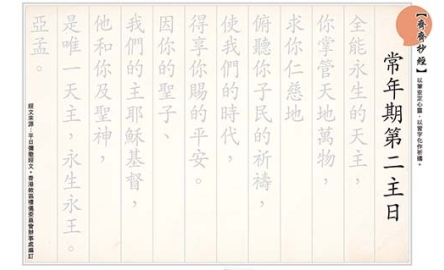 【齊齊抄經】
以筆墨定心靈，以習字心作祈禱。
常年期第二主日
全能永生的天主，
你掌管天地萬物，
求你仁慈地
俯聽你子民的祈禱，
使我們的時代，
得享你賜的平安。
因你的聖子、
我們的主耶穌基督，
他和你及聖神，
是唯一天主，永生永王。
亞孟。
經文來源：平日彌撒經文。香港教區禮儀委員會辦事處編訂